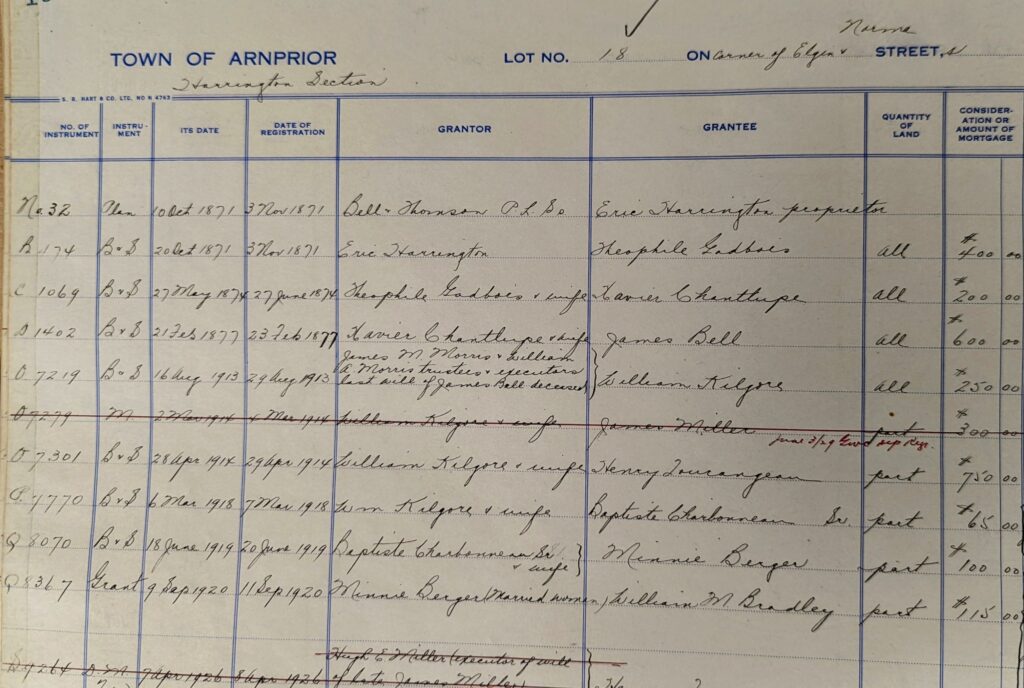 Norma
TOWN OF ARNPRIOR LOT NO. 18 ON corner of Elgin & STREET, s
Harrington Section
S. R. HART & CO. LTD. NO N 4763
NO. OF INSTRUMENT INSTRU- MENT ITS DATE DATE OF REGISTRATION GRANTOR GRANTEE QUANTITY OF LAND CONSIDER- ATION OR AMOUNT OF MORTGAGE
No. 32 Plan 10 Oct 1871 3 Nov 1871 Bell & Thomson P. L. Ss Eric Harrington proprietor
B 174 B & S 20 Oct 1871 3 Nov 1871 Eric Harrington Theophile Godbois all $400 00
C 1069 B & S 27 May 1874 27 June 1874 Theophile Godbois & wife Xavier Chantlupe all $200 00
D 1402 B & S 21 Feb 1877 23 Feb 1877 Xavier Chantlupe & wife James Bell all $600 00
James M. Morris & William
A. Morris trustees & executors
O 7219 B & S 16 Aug 1913 29 Aug 1913 last will of James Bell deceased } William Kilgore all $250 00
O 7279 M. 2 Mar 1914 4 Mar 1914 William Kilgore & wife James Miller part $300 00
June 3/29
O 7301 B & S 28 Apr 1914 29 Apr 1914 William Kilgore & wife Henry Tourangeau part $750 00
P 7770 B & S 6 Mar 1918 7 Mar 1918 Wm Kilgore & wife Baptiste Charbonneau Sr. part $65 00
Q 8070 B & S 18 June 1919 20 June 1919 Baptiste Charbonneau Sr. & wife } Minnie Berger part $100 00
Q 8367 Grant 9 Sep 1920 11 Sep 1920 Minnie Berger (Married women) William M Bradley part $115 00
Hugh E Miller (executor of will
S 9264 D. M. 7 Apr 1926 8 Apr 1926 of late James Miller) }